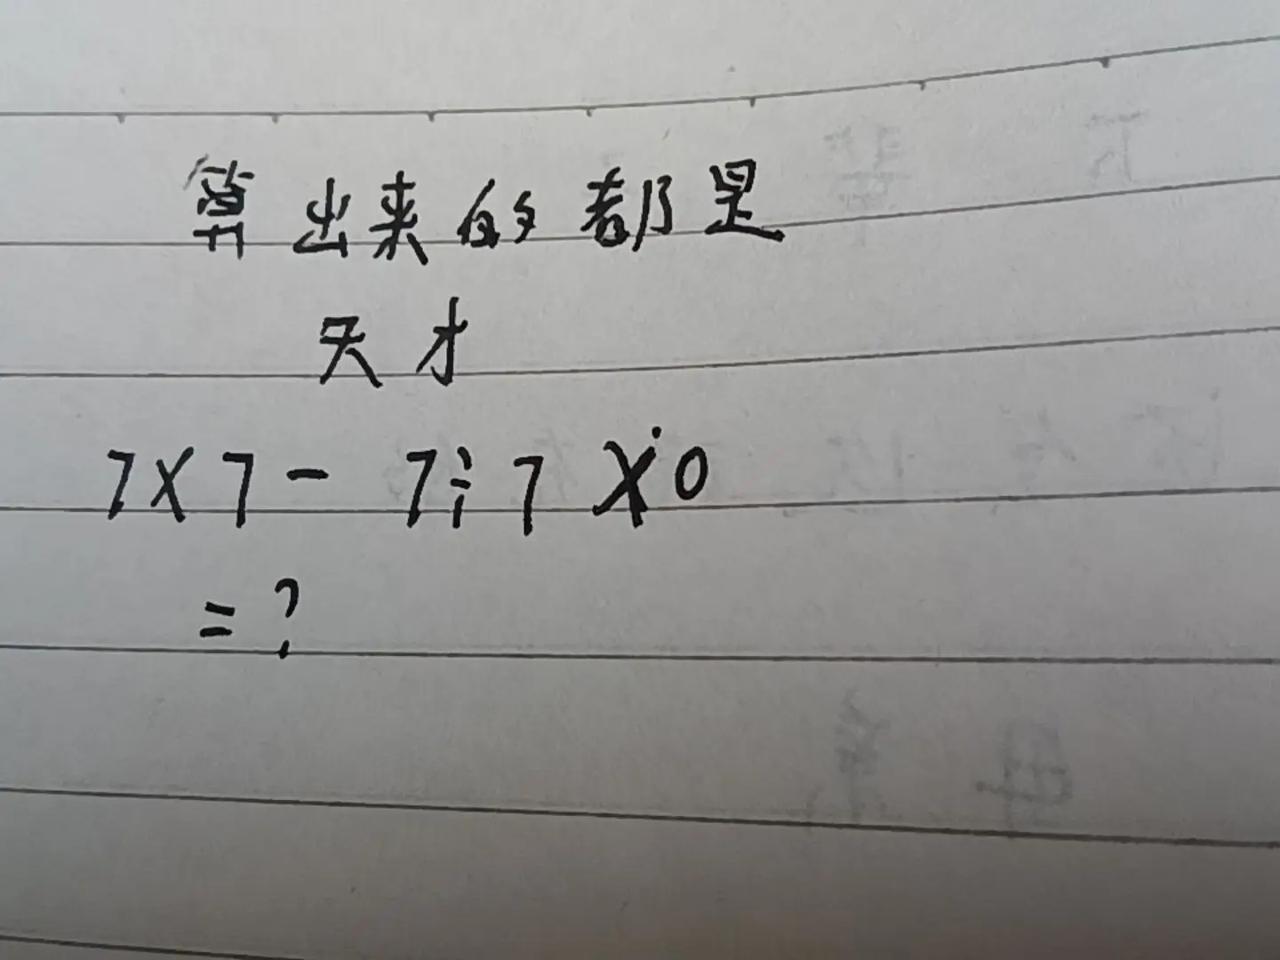 算出来的都是
天才
7×7-7÷7×0
=?